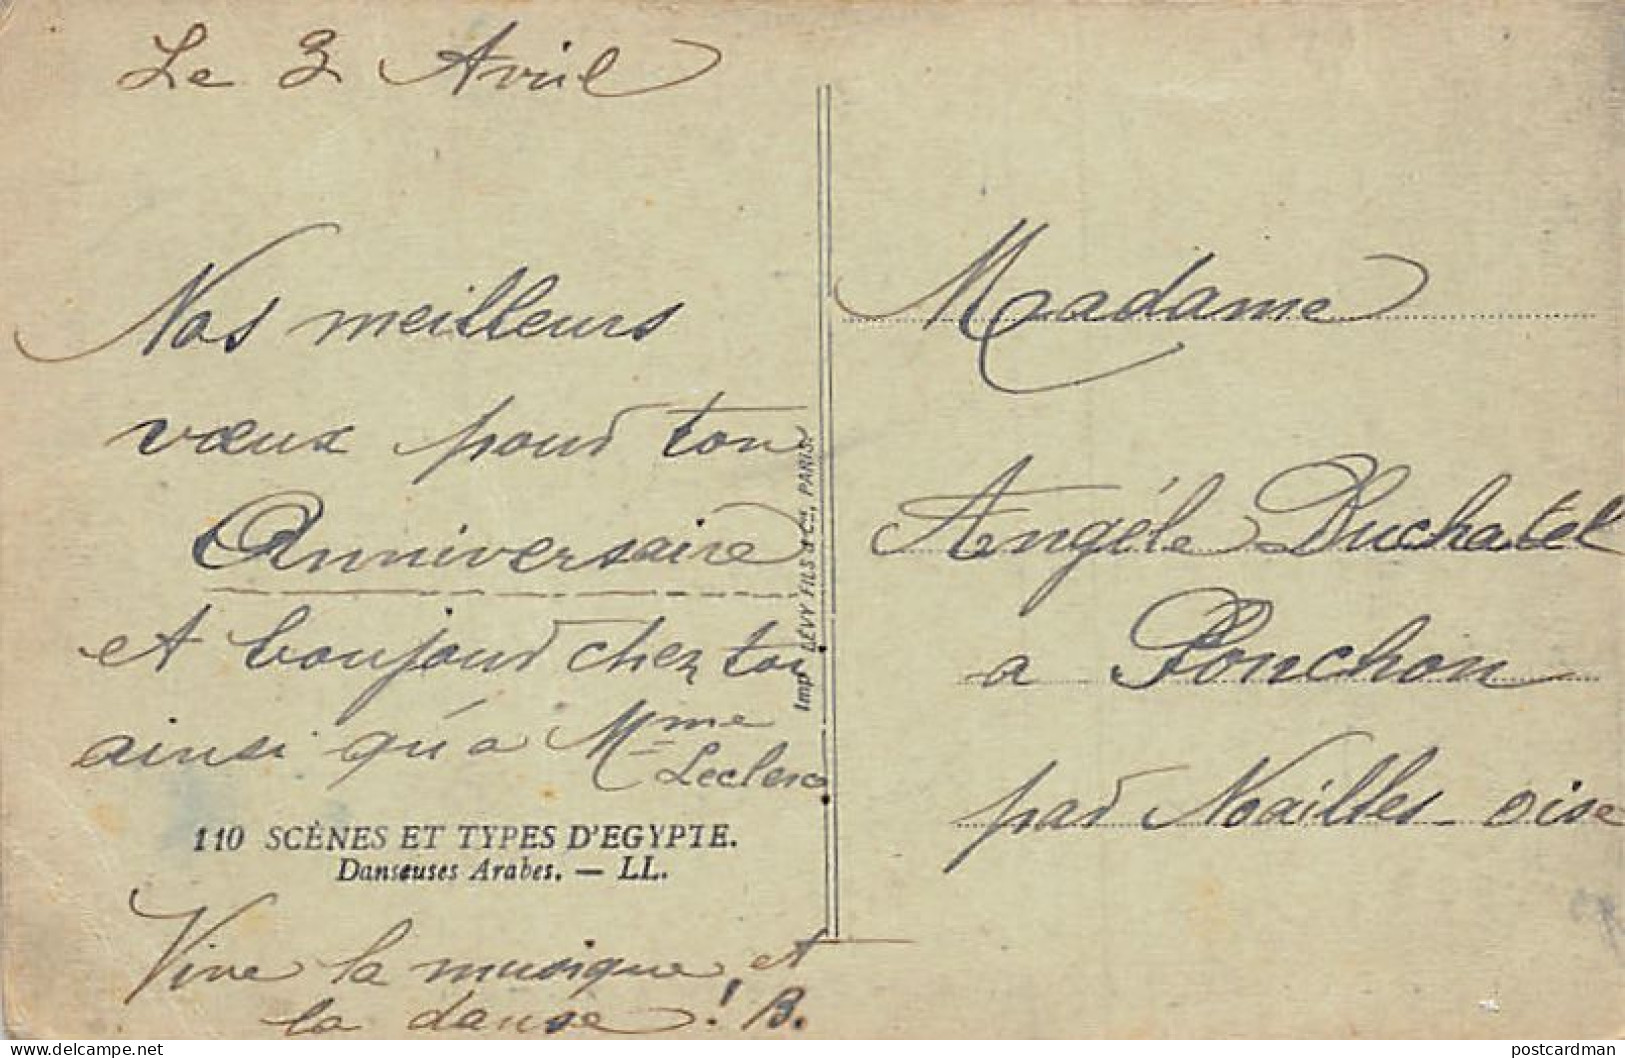 Le 3 Avril
Nos meilleurs
vœux pour ton
Anniversaire
et bonjour chez toi
ainsi qu'a Mme
Leclerc
110 SCÈNES ET TYPES D'EGYPTE.
Danseuses Arabes. — LL.
Vive la musique, et
la danse! B.
Imp. LÉVY FILS & Cie, PARIS.
Madame
Angéle Duchatel
a Ponchon
par Noailles - oise
postcardman.delcampe.net
postcardman